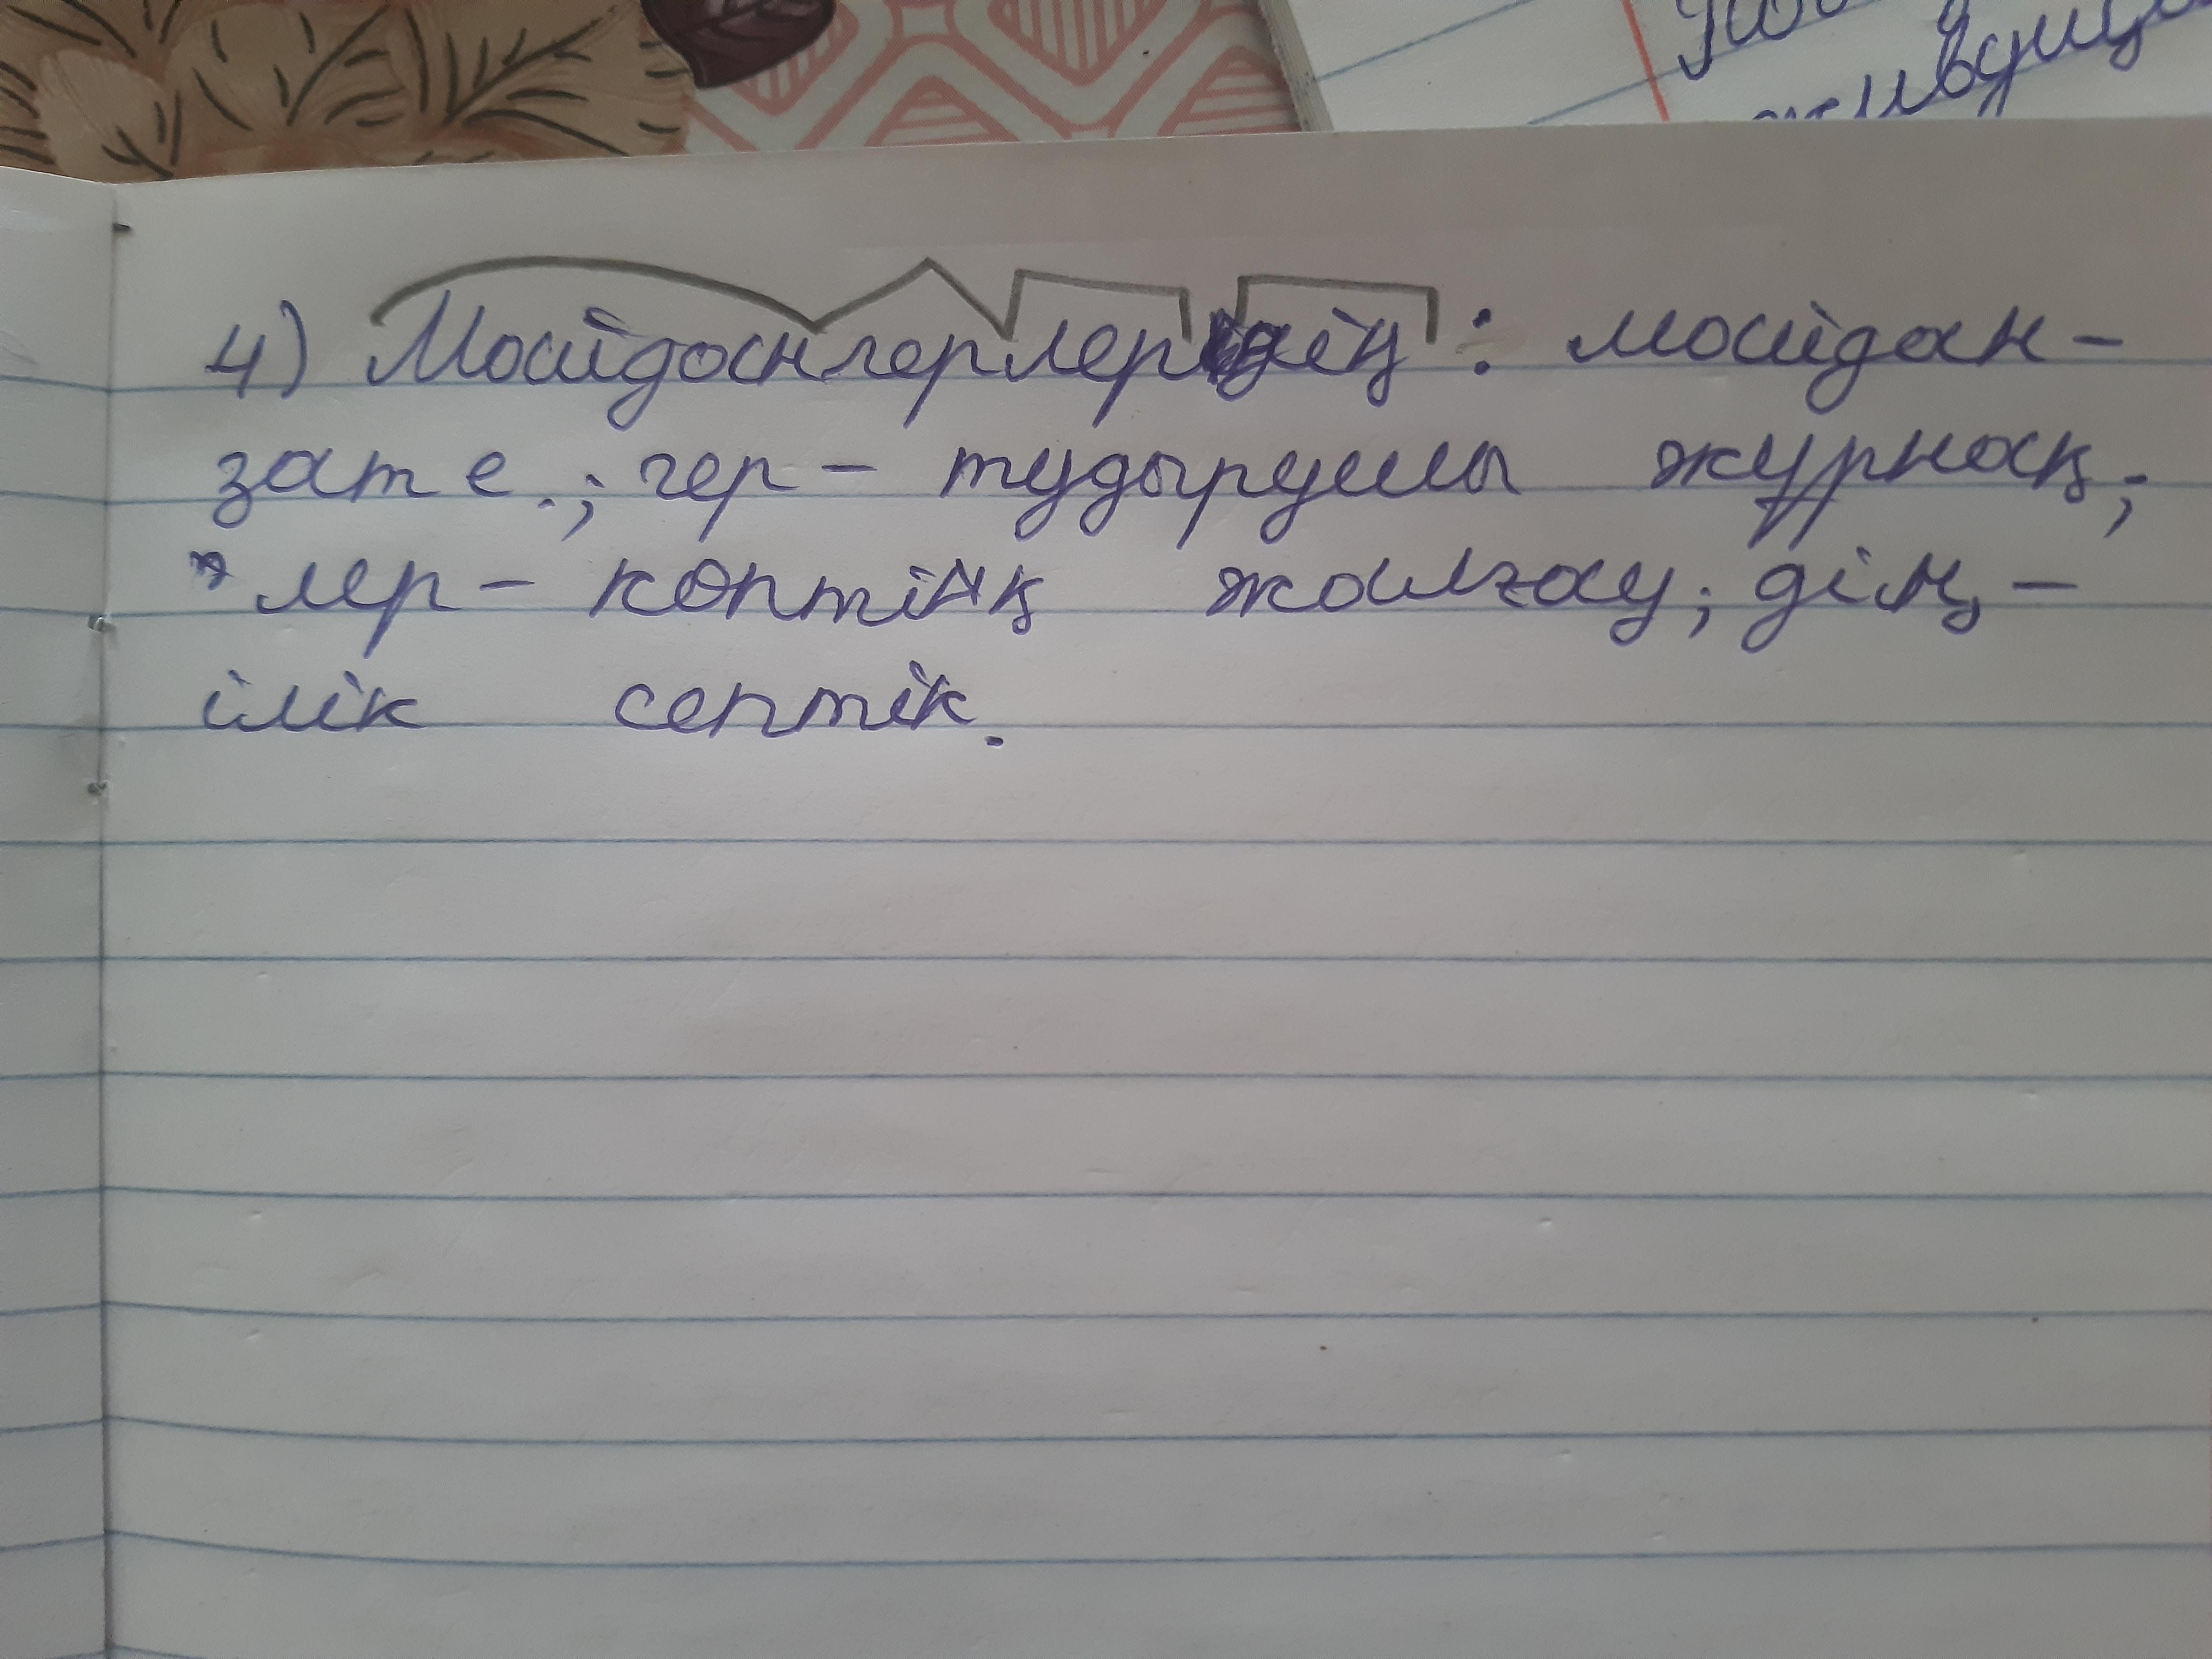 4) Майдангерлердің : майдан -
зат е.; гер - тудырушы журнақ;
лер - көптiң жалғау; дің -
ілік септік.